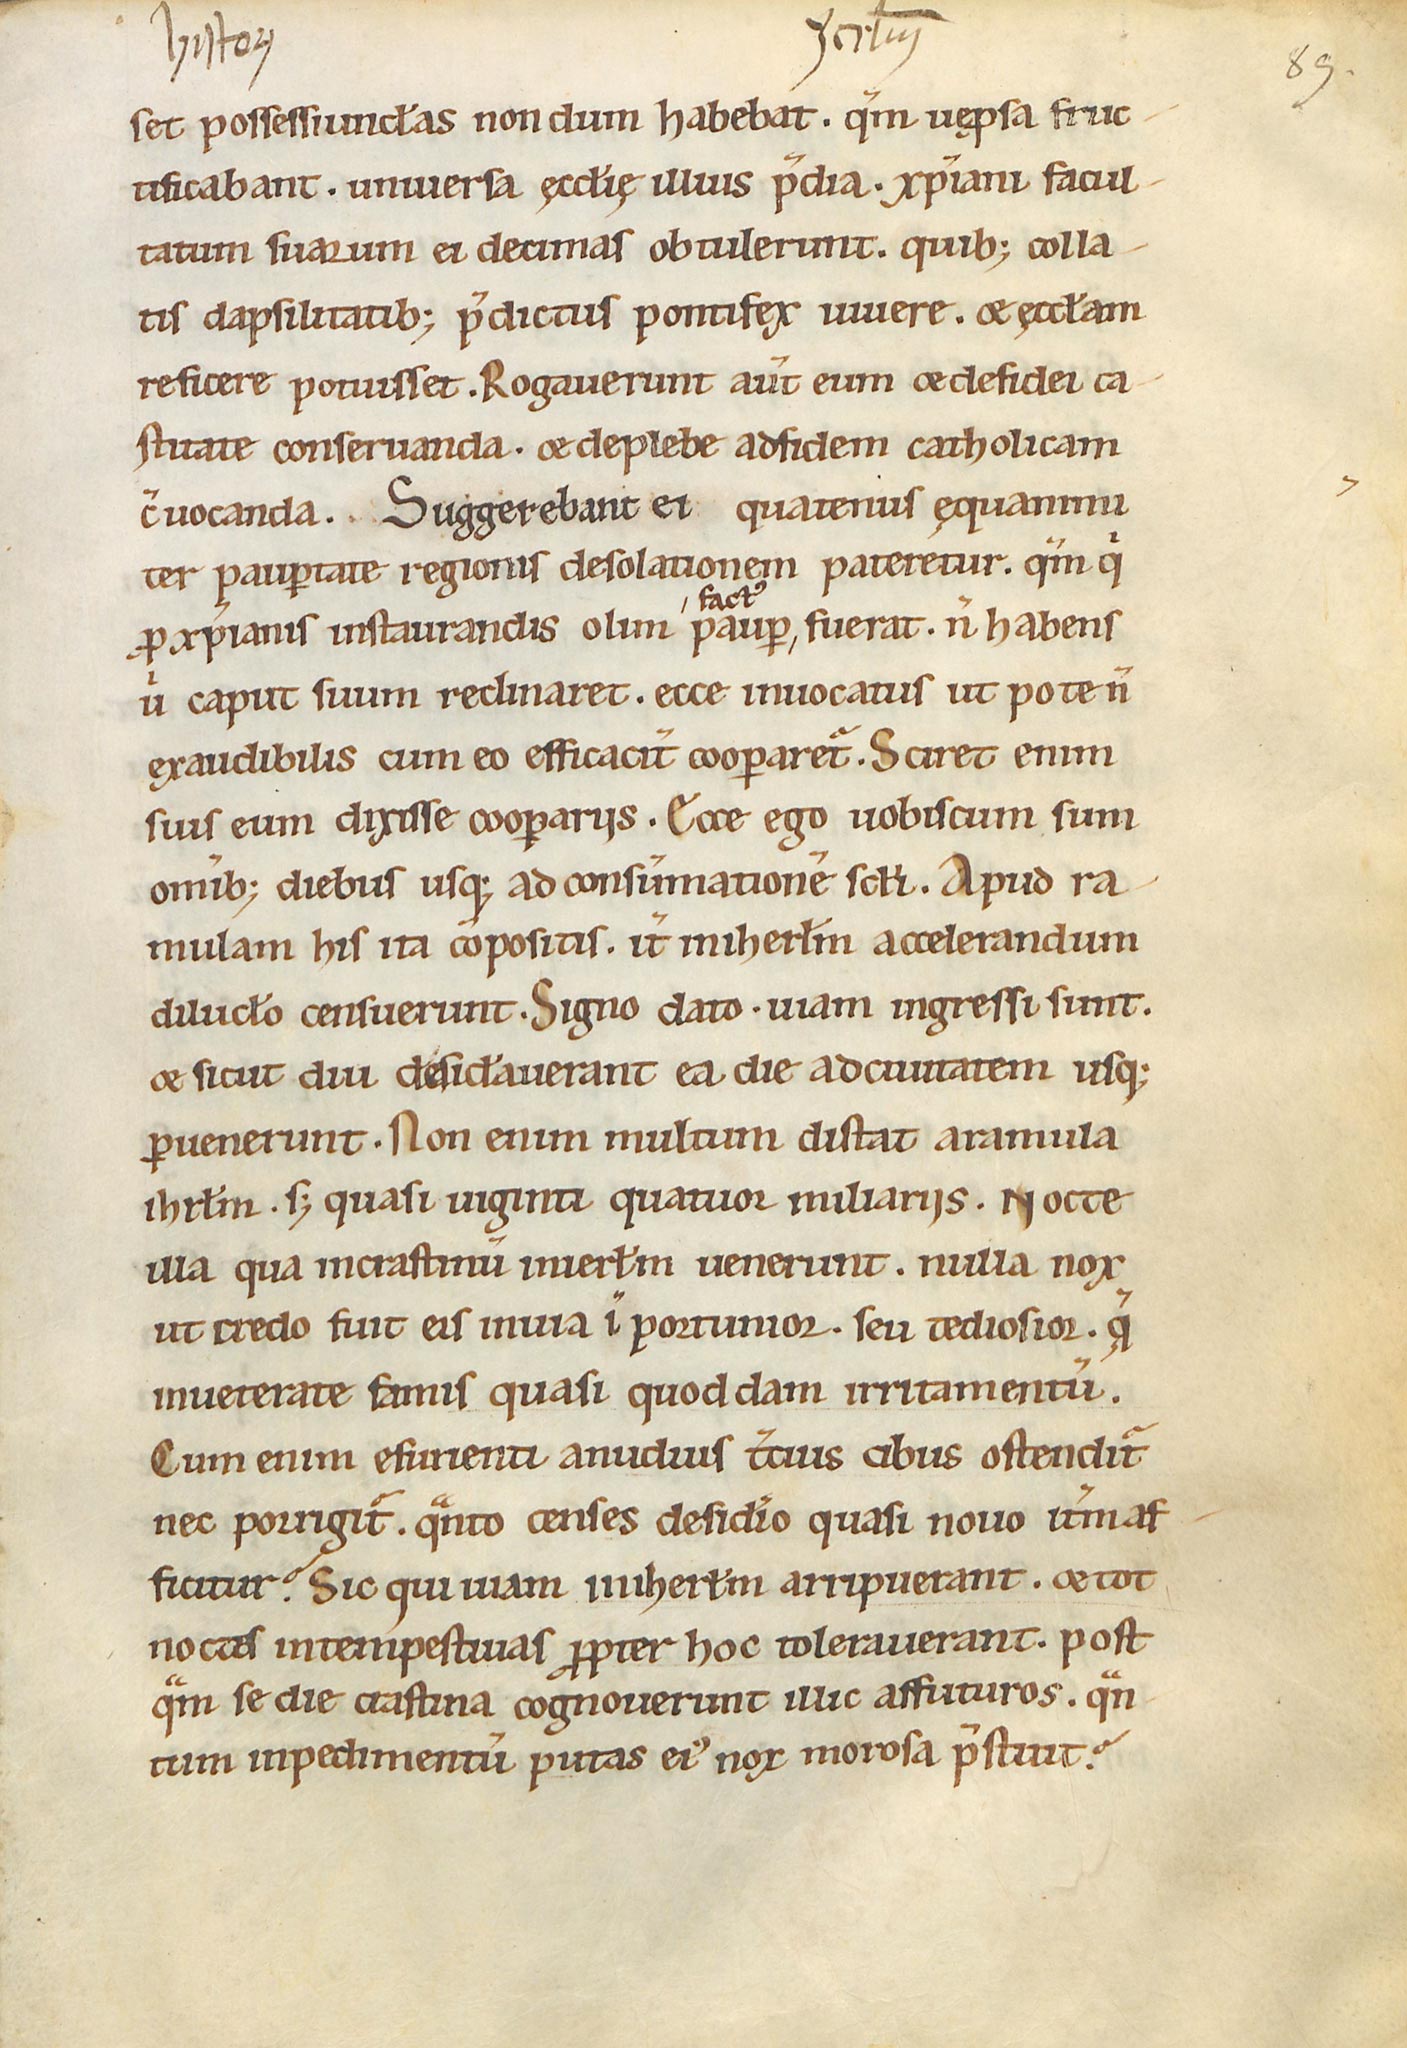 histor
Jerl̅m
89.
set possessiuncl̅as non dum habebat. qm̅ uępsa fruc
tificabant. uniuersa ęccl̅ię illius p̅dia. xp̅iani facul
tatum suarum ei decimas obtulerunt. quib; colla
tis dapsilitatib; p̅dictus pontifex uiuere. & ęccl̅am
reficere potuisset. Rogauerunt aut̅ eum & defidei ca
stitate conseruanda. & deplebe adfidem catholicam
c̅uocanda. Suggerebant ei quatenus ęquanimi
ter paup̱tate regionis desolationem pateretur. qm̅ qͥ
ꝓ xp̅ianis instaurandis olim paup̱ factꝰ fuerat. n̅ habens
uͥ caput suum reclinaret. ecce inuocatus ut pote n̅
exaudibilis cum eo efficacit̅ coop̱aret̅. Sciret enim
suis eum dixisse coop̱arijs. Ecce ego uobiscum sum
omib̅; diebus usq; ad consum̅matione̅ scl̅i. Apud ra
mulam his ita co̅positis. it̅ iniherl̅m accelerandum
dilucl̅o censuerunt. Signo dato. uiam ingressi sunt.
& sicut diu desid̅auerant ea die adciuitatem usq;
p̱uenerunt. Non enim multum distat aramula
ihrl̅m. s; quasi uiginti quatuor miliarijs. Nocte
illa qua incrastinu̅ inierl̅m uenerunt. nulla nox
ut credo fuit eis inuia i̅portunior. seu tediosior. qͥ
inueterate famis quasi quoddam irritamentu̅.
Cum enim esurienti anudius t̅cius cibus ostendit̅
nec porrigit̅. qͣnto censes desid̅io quasi nouo it̅m af
ficitur? Sic qui uiam iniherl̅m arripuerant. & tot
noctes intempestiuas ꝓpter hoc tolerauerant. post
qͣm se die crastina cognouerunt illic affuturos. qͣn
tum inpedimentu̅ putas eiꝰ nox morosa p̅stitit?